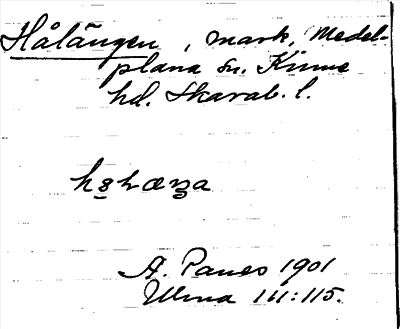 Hålängen, mark, Medel-
plana sn. Kinne
hd. Skarab. l.
A. Panes 1901
Ulma 111:115.